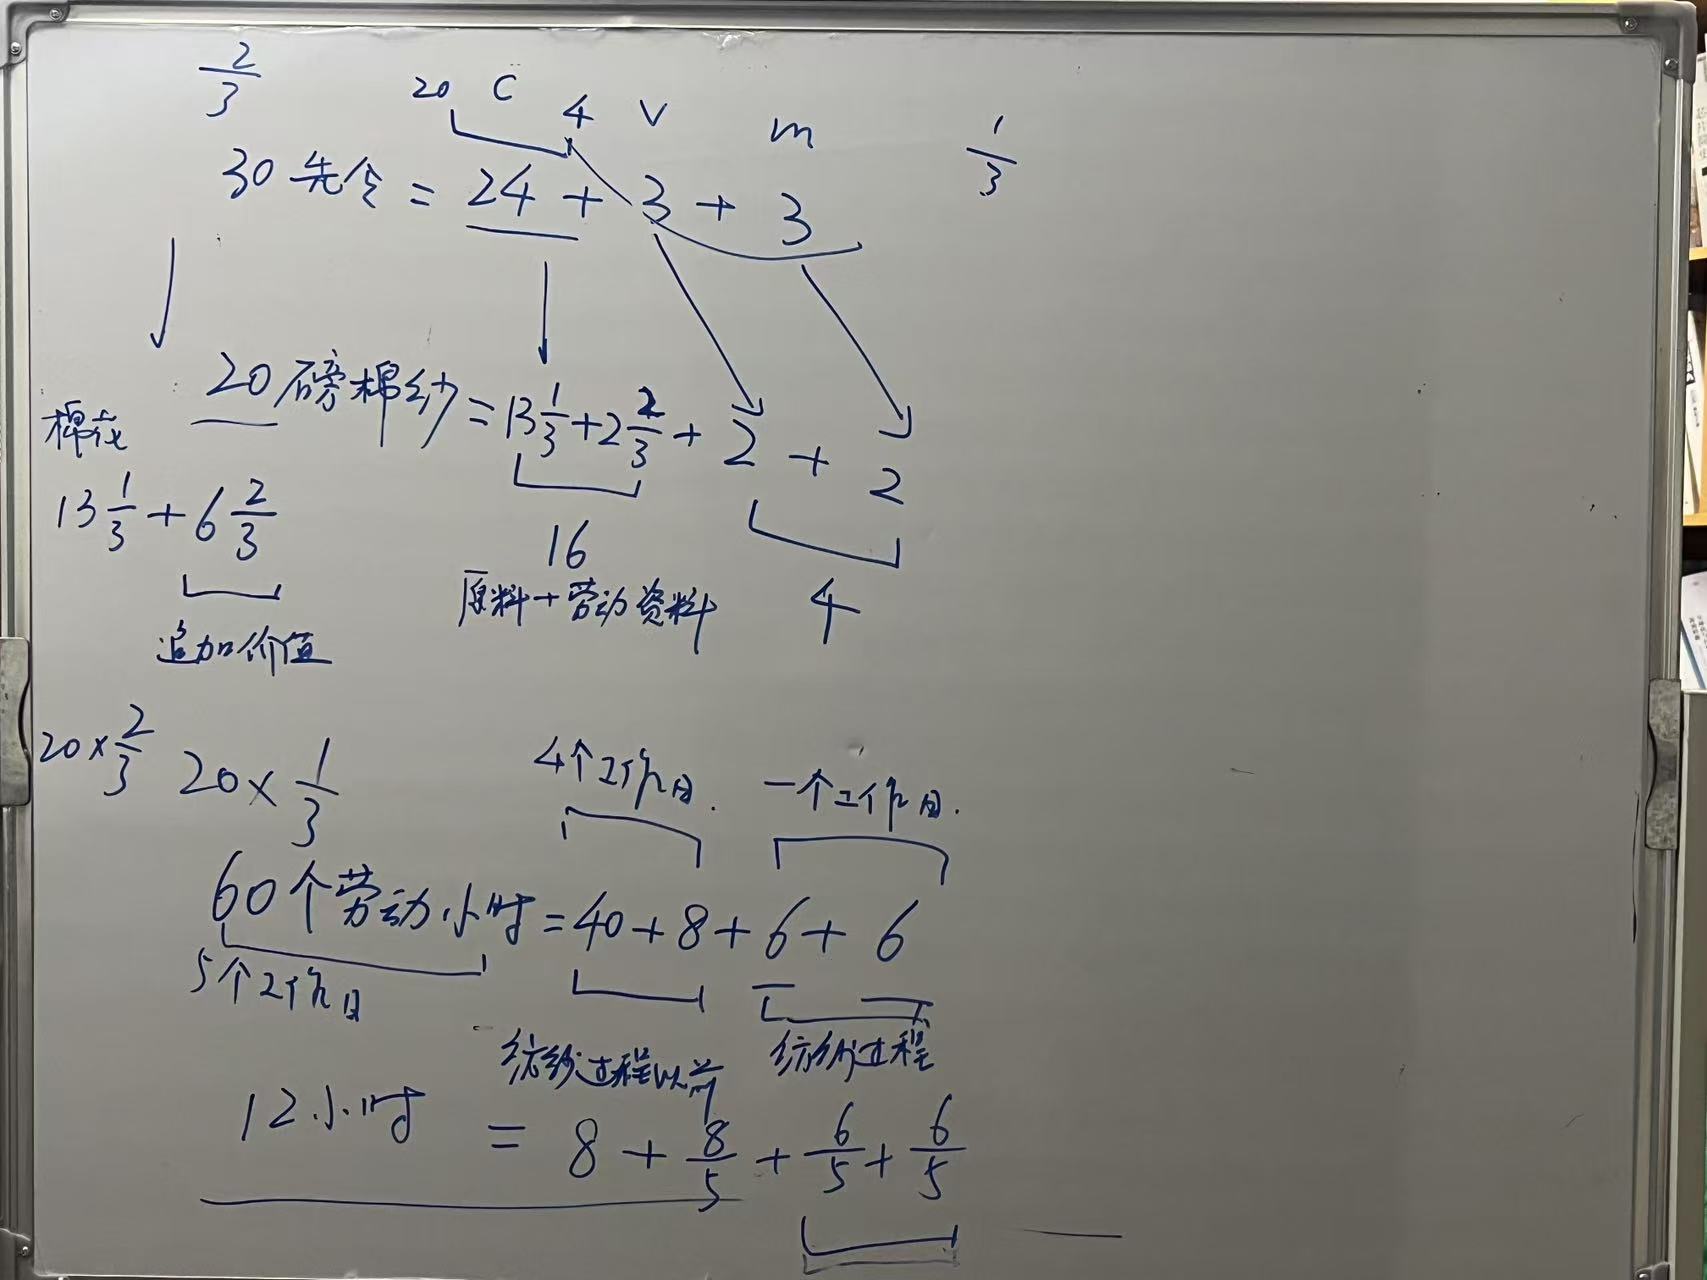 2/3
20 C 4 V m
1/3
30先令 = 24 + 3 + 3
20磅棉纱 = 13 1/3 + 2 2/3 + 2 + 2
棉花
13 1/3 + 6 2/3
16
4
原料+劳动资料
追加价值
20×2/3 20×1/3
4个工作日. 一个工作日.
60个劳动小时 = 40 + 8 + 6 + 6
5个工作日
纺纱过程以前 纺纱过程
12小时 = 8 + 8/5 + 6/5 + 6/5